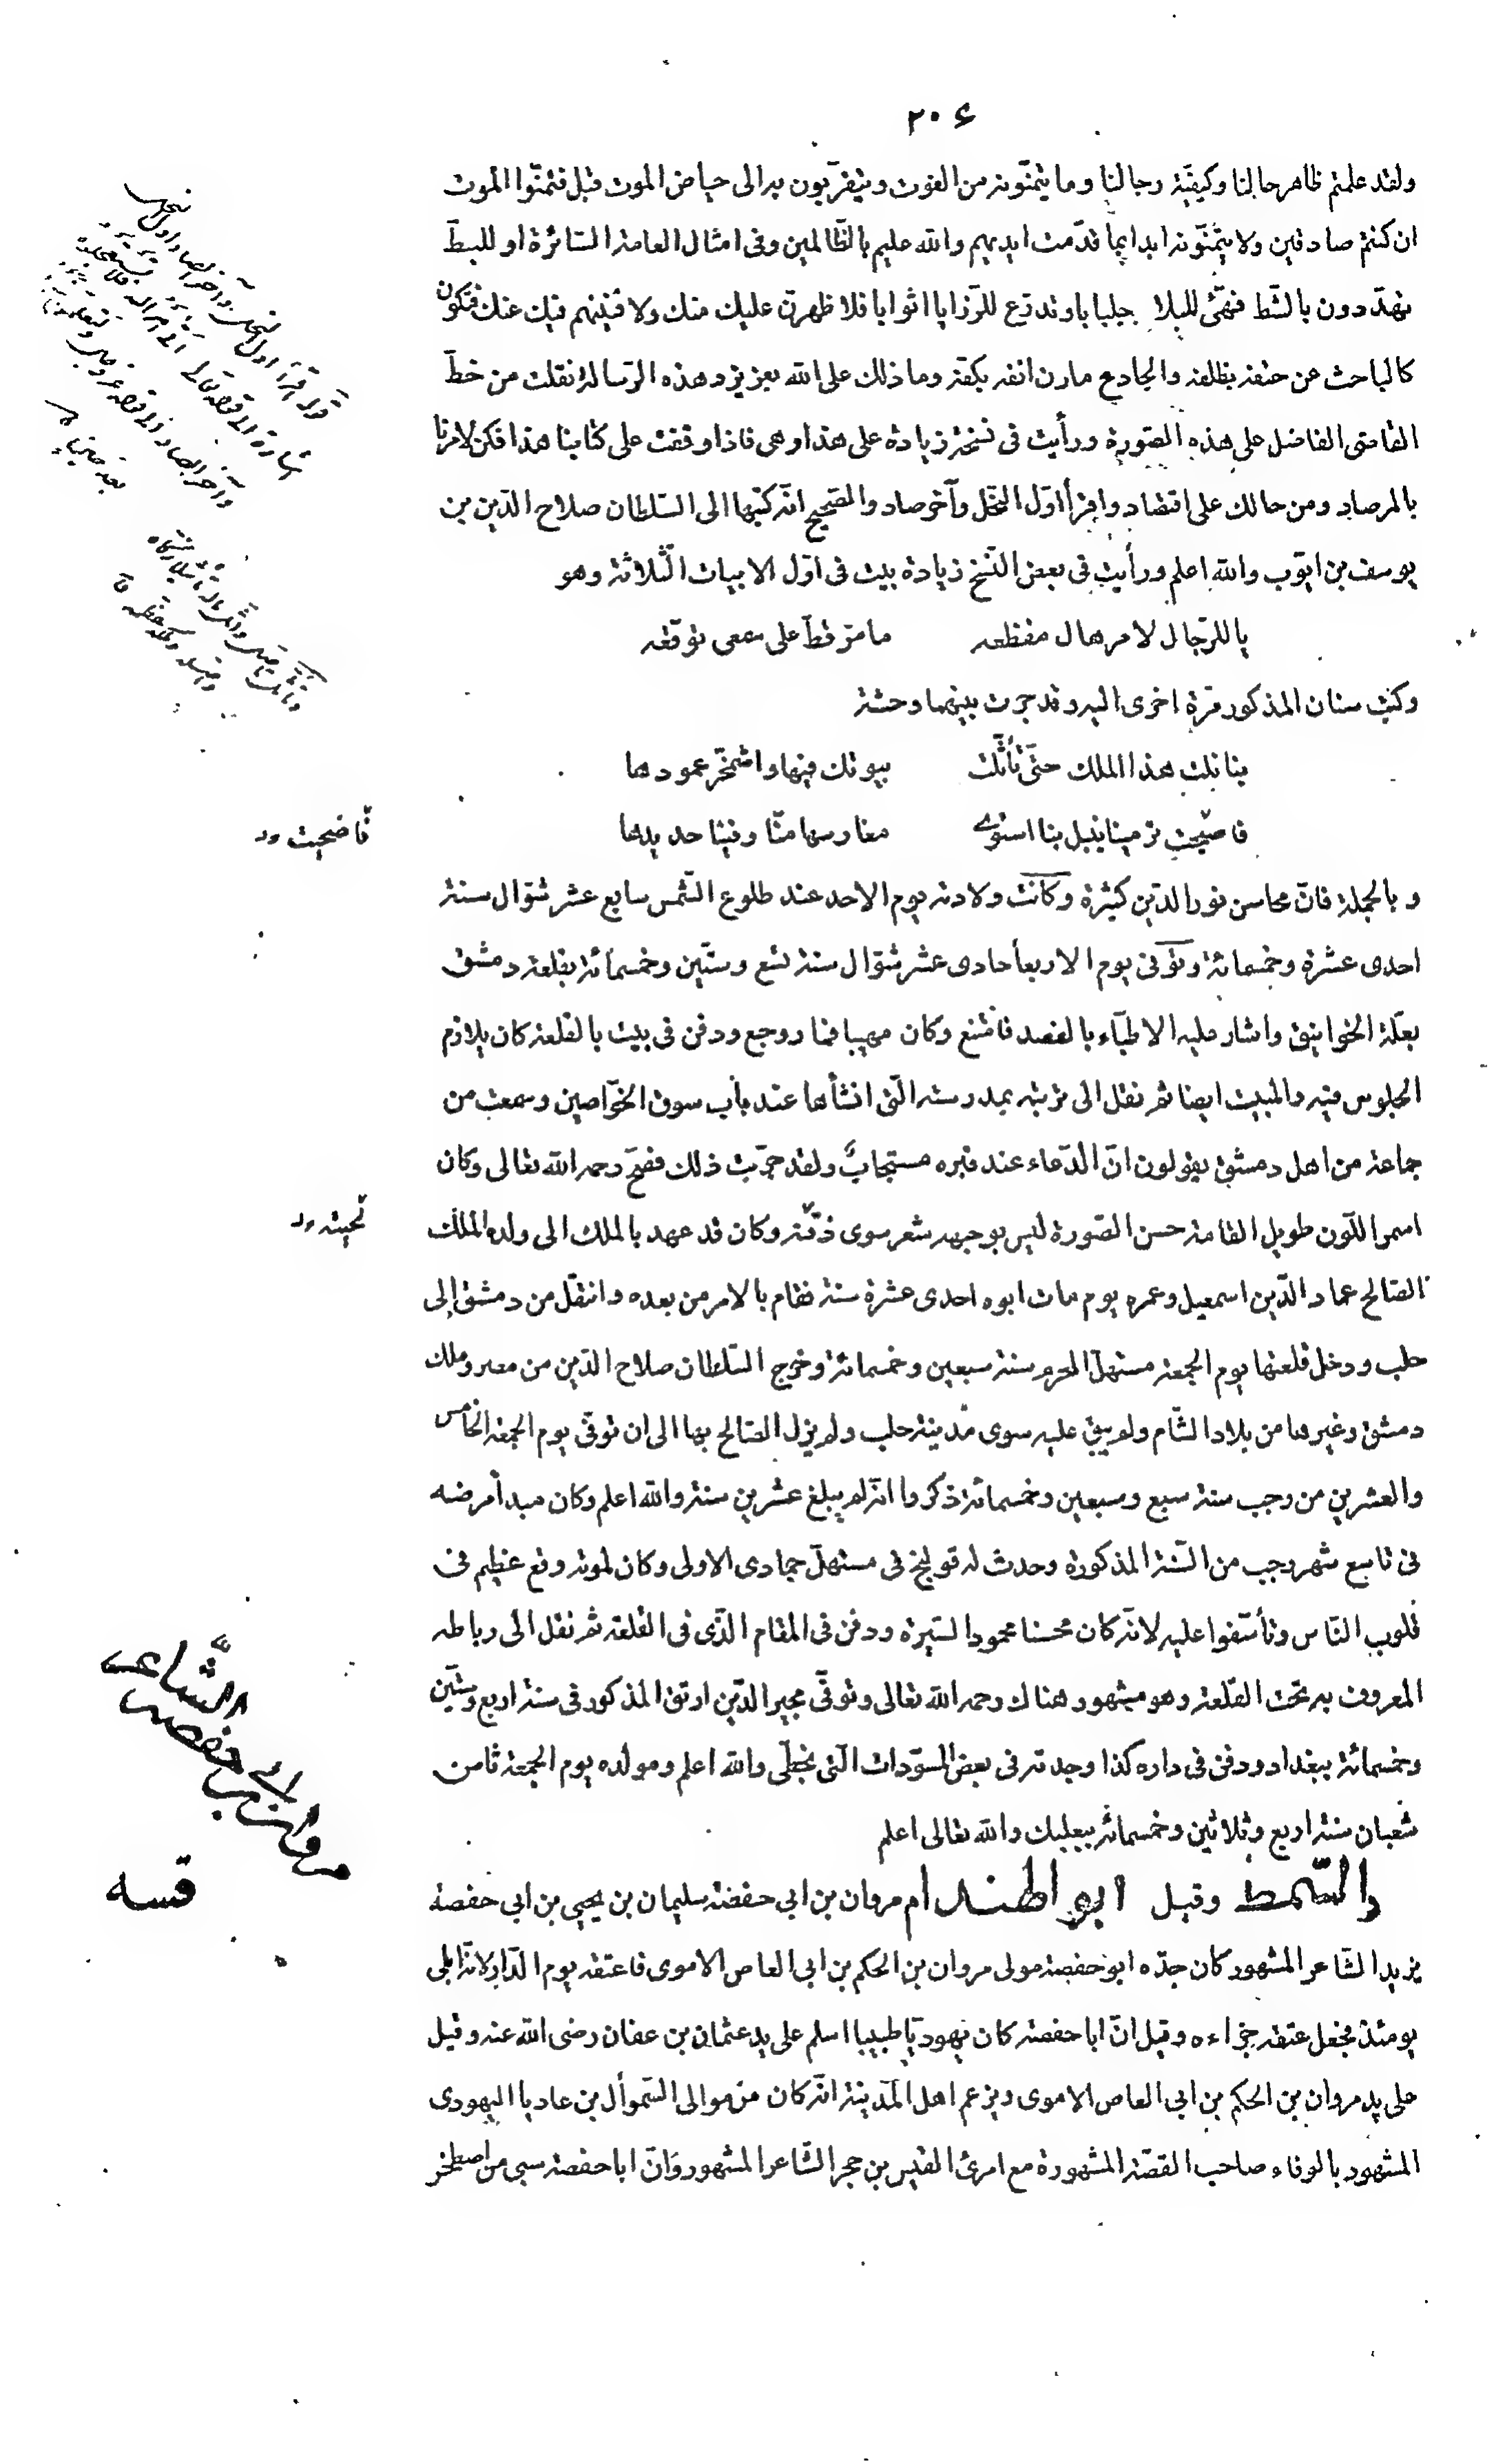 ۲۰۶
ولقد علمتم ظاهر حالنا وكيفيّة رجالنا وما يتمنّونه من الفوت ويتقرّبون به الى حياض الموت قبل فتمنّوا الموت
ان كنتم صادقين ولا يتمنّونه ابدا بما قدّمت ايديهم والله عليم بالظّالمين وفى امثال العامة السّائرة او للبطّ
تهدّدون بالشّط فهيّئ للبلا جلبابا وتدرّع للرّزايا اثوابا فلا ظهرنّ عليك منك ولا فنينهم فيك عنك فتكون
كالباحث عن حتفه بظلفه والجادع مارن انفه بكفّه وما ذلك على الله بعزيز وهذه الرّسالة نقلت من خطّ
القاضى الفاضل على هذه الصّورة ورأيت فى نسخة زيادة على هذا وهى فاذا وقفت على كتابنا هذا فكن لامرنا
بالمرصاد ومن حالك على اقتصاد واقرأ اوّل النّحل وآخر صاد والصّحيح انّه كتبها الى السّلطان صلاح الدّين بن
يوسف بن ايّوب والله اعلم ورأيت فى بعض النّسخ زيادة بيت فى اوّل الابيات الثّلاثة وهو
يا للرّجال لامر هال مفظعه ما مرّ قطّ على سمعى توقّعه
وكتب سنان المذكور مرة اخرى اليه وقد جرت بينهما وحشة
بنا نلت هذا الملك حتّى تأثّلت بيوتك فيها واشمخرّ عمودها
فاصبحت ترمينا بنبل بنا استوى مغارسها منّا وفينا حديدها
فاضحيت
وبالجملة فانّ محاسن نور الدّين كثيرة وكانت ولادته يوم الاحد عند طلوع الشّمس سابع عشر شوّال سنة
احدى عشرة وخمسمائة وتوفى يوم الاربعا حادى عشر شوّال سنة تسع وستّين وخمسمائة بقلعة دمشق
بعلّة الخوانيق واشار عليه الاطبّاء بالفصد فامتنع وكان مهيبا فما روجع ودفن فى بيت بالقلعة كان يلازم
الجلوس فيه والمبيت ايضا ثم نقل الى تربته بمدرسته الّتى انشأها عند باب سوق الخوّاصين وسمعت من
جماعة من اهل دمشق يقولون انّ الدّعاء عند قبره مستجاب ولقد جرّبت ذلك فصحّ رحمه الله تعالى وكان
اسمر اللّون طويل القامة حسن الصّورة ليس بوجهه شعر سوى ذقنه وكان قد عهد بالملك الى ولده الملك
لحيته
الصّالح عماد الدّين اسمعيل وعمره يوم مات ابوه احدى عشرة سنة فقام بالامر من بعده وانتقل من دمشق إلى
حلب ودخل قلعتها يوم الجمعة مستهلّ المحرم سنة سبعين وخمسمائة وخرج السّلطان صلاح الدّين من مصر وملك
دمشق وغيرها من بلاد الشّام ولم يبق عليه سوى مدينة حلب ولم يزل الصّالح بها الى ان توفّى يوم الجمعة الخامس
والعشرين من رجب سنة سبع وسبعين وخمسمائة ذكروا انّه لم يبلغ عشرين سنة والله اعلم وكان مبدأ مرضه
فى تاسع شهر رجب من السّنة المذكورة وحدث له قولنج فى مستهلّ جمادى الاولى وكان لموته وقع عظيم فى
قلوب النّاس وتأسّفوا عليه لانّه كان محسنا محمود السّيرة ودفن فى المقام الّذى فى القلعة ثم نقل الى رباطه
المعروف به تحت القلعة وهو مشهور هناك رحمه الله تعالى وتوفّى مجير الدّين ارتق المذكور فى سنة اربع وستّين
وخمسمائة ببغداد ودفن فى داره كذا وجدته فى بعض المسوّدات الّتى بخطّى والله اعلم ومولده يوم الجمعة ثامن
شعبان سنة اربع وثلاثين وخمسمائة ببعلبك والله تعالى اعلم
الشّاعر
مروان بن ابى حفصه
السّمط وقيل ابو الهندام مروان بن ابى حفصة سليمان بن يحيى بن ابى حفصة
يزيد الشّاعر المشهور كان جدّه ابو حفصة مولى مروان بن الحكم بن ابى العاص الاموى فاعتقه يوم الدّار لانّه ابلى
يومئذ فجعل عتقه جزاءه وقيل انّ ابا حفصة كان يهوديّا طبيبا اسلم على يد عثمان بن عفان رضى الله عنه وقيل
على يد مروان بن الحكم بن ابى العاص الاموى ويزعم اهل المدينة انّه كان من موالى السّموأل بن عاديا اليهودى
المشهود بالوفاء صاحب القصّة المشهورة مع امرئ القيس بن حجر الشّاعر المشهور وانّ ابا حفصة سبى من اصطخر